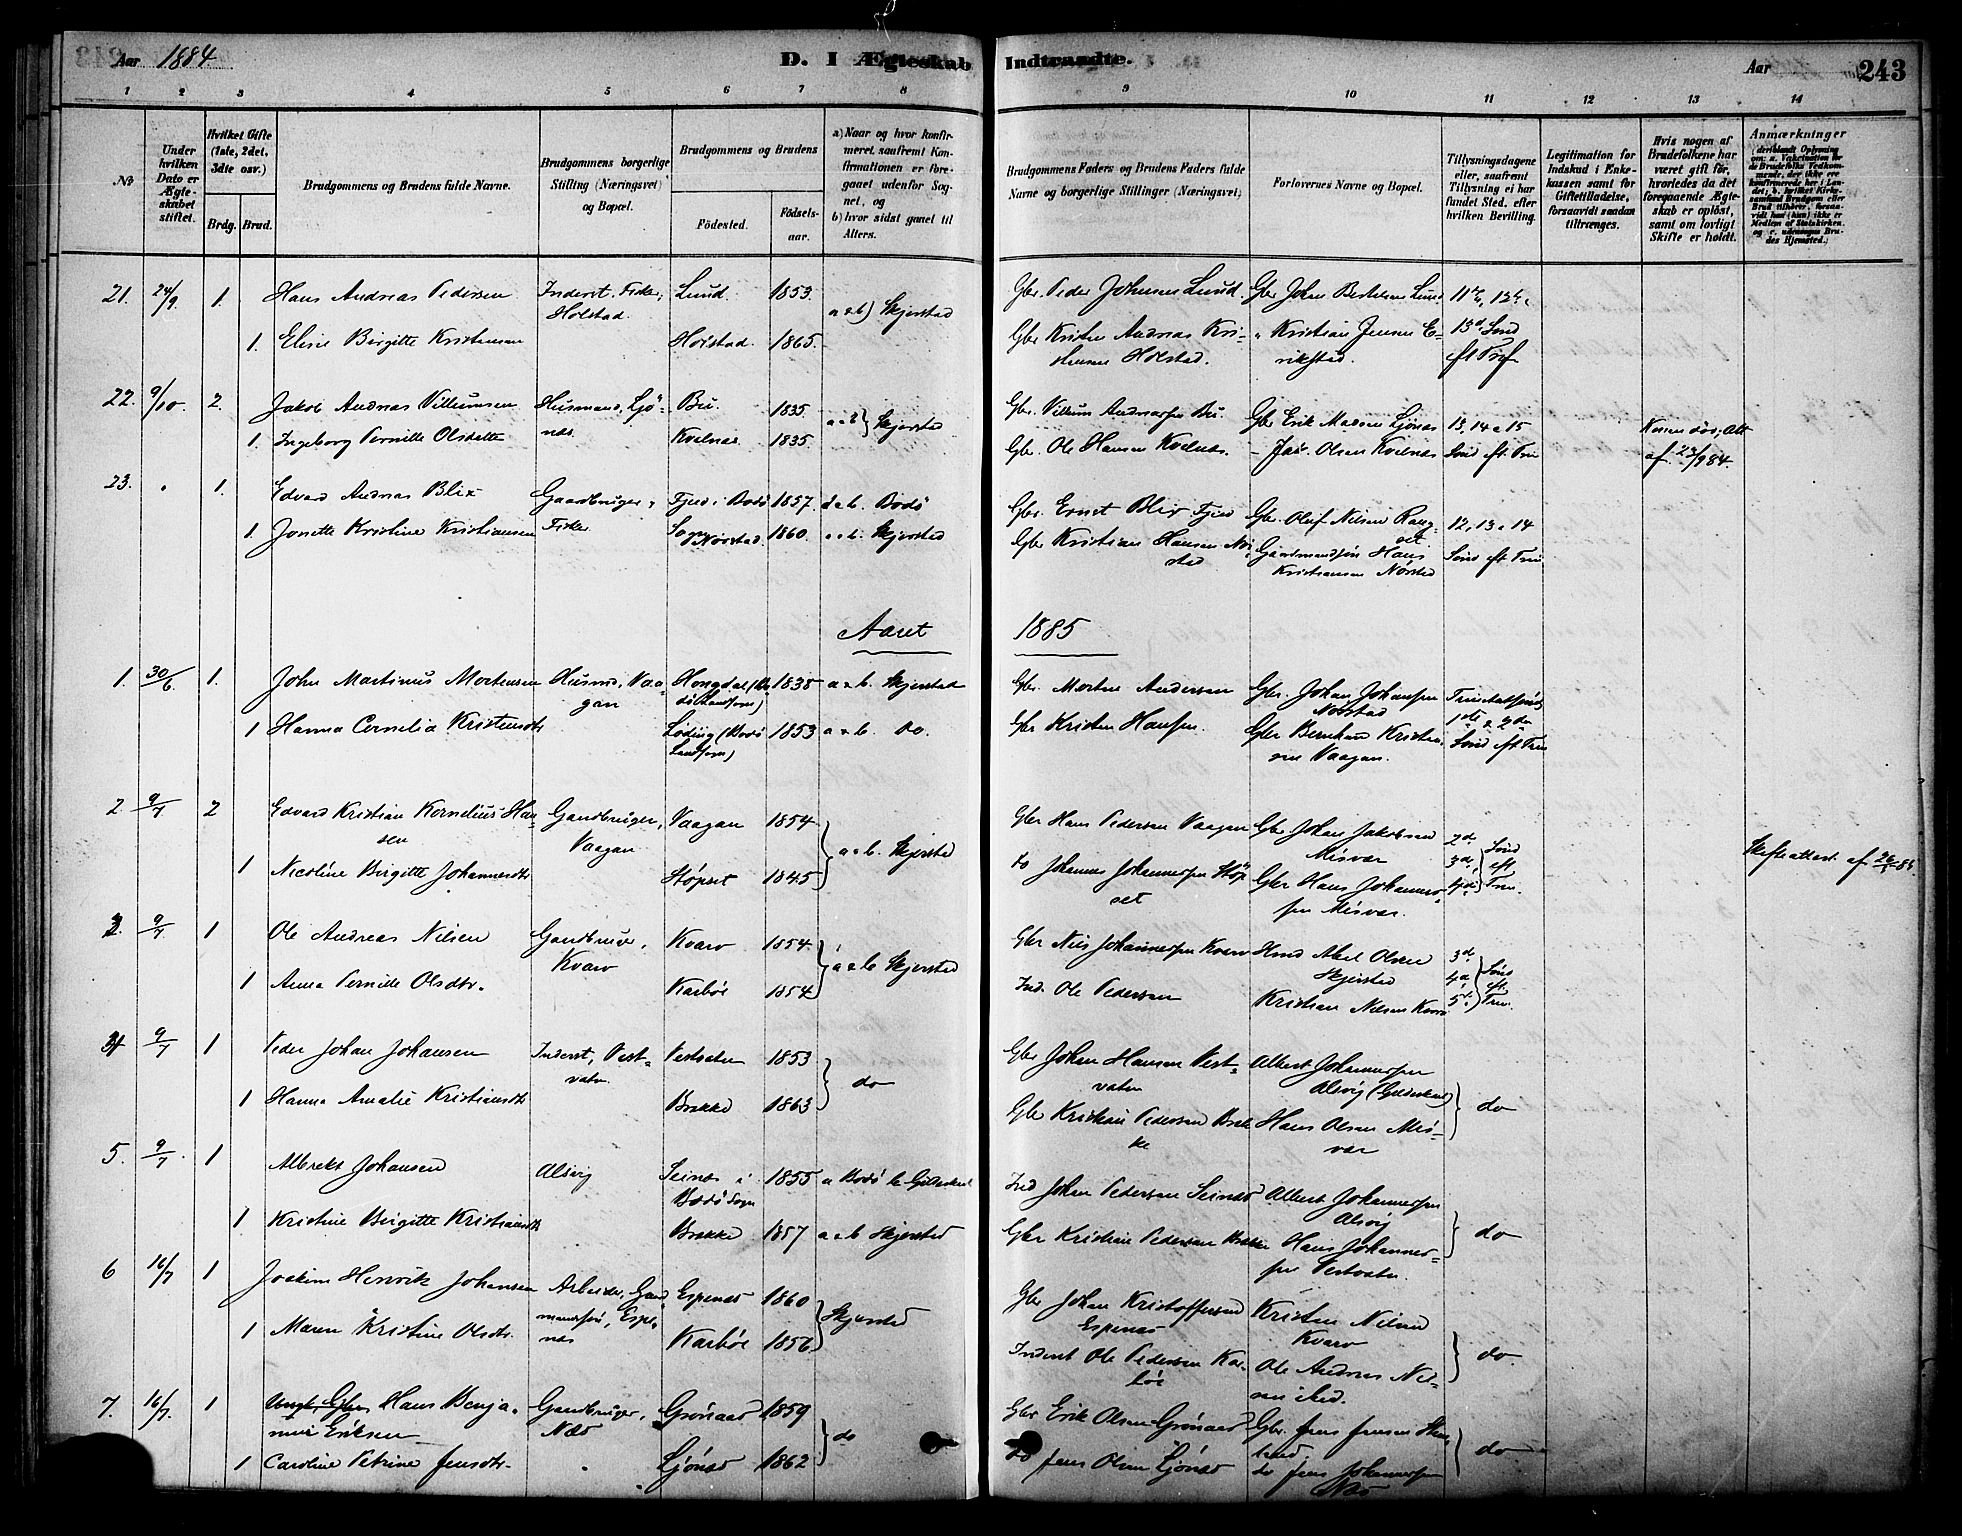 Aar 1884. D. I Ægteskab Indtraadte. Aar 243
1 2 3 4 5 6 7 8 9 10 11 12 13 14
No
Under hvilken Dato er Ægteskabet stiftet.
Hvilket Gifte (1ste, 2det, 3dte osv.)
Brdg. Brud.
Brudgommens og Brudens fulde Navne.
Brudgommens borgerlige Stilling (Næringsvei) og Bopæl.
Brudgommens og Brudens
Fødested. Fødselsaar.
a) Naar og hvor konfirmeret, saafremt Konfirmationen er foregaaet udenfor Sognet, og
b) hvor sidst gaaet til Alters.
Brudgommens Faders og Brudens Faders fulde Navne og borgerlige Stillinger (Næringsvei)
Forlovernes Navne og Bopæl.
Tillysningsdagene eller, saafremt Tillysning ei har fundet Sted, efter hvilken Bevilling.
Legitimation for Indskud i Enkekassen samt for Giftetilladelse, forsaavidt saadan tiltrænges.
Hvis nogen af Brudefolkene har været gift før, hvorledes da det foregaaende Ægteskab er opløst, samt om lovligt Skifte er holdt.
Anmærkninger
21. 24/9 1. Hans Andreas Pedersen Inderst. Fisker, Holstad. Lund. 1853. a & b) Skjerstad Gbr. Peder Johnsen Lund. Gbr Johan Bertelsen Lund 11te, 12te
1. Elise Birgitte Kristensen Holstad. 1865. Gbr Kristen Andreas Kristensen Holstad. " Kristian Jensen Erikstad. 13de Sønd eft Tref
22. 9/10. 2. Jakob Andreas Villumsen Husmand, Ljønæs Bu. 1835. a & b} Skjerstad Gbr. Villum Andersen Bu. Gbr Erik Madsen Ljönæs 13, 14 & 15
1. Ingeborg Pernille Olsdatter Kvelnæs. 1835. Gbr. Ole Hansen Kvelnæs. - Jak. Olsen Kvelnæs Sønd eft. Tre Konen död, Att af 23/9 84.
23. " 1. Edvard Andreas Blix Gaardbruger & Fisker Fjære i Bodö 1857. a & b. Bodö Gbr. Ernst Blix Fjære Gbr. Oluf Nilsen 12, 13 & 14
1. Jonette Kristine Kristiansen Nörstad. 1860. a & b. Skjerstad Gbr Kristian Hansen Nörstad Gaardmandssön Hans Kristiansen Nörstad Sønd eft Tre
Aaret 1885
1. 30/6. 1. John Martinus Mortensen Husmd, Vaagan Hongdal (Bodö Landsogn) 1838 a & b. Skjerstad Gbr. Morten Andersen Gbr. Johan Johansen Nörstad
1 Hanna Cornelia Kristensdtr Löding (Bodö Landsogn) 1853 a & b. Do. Gbr Kristen Hansen. Gbr Bernhard Kristensen Vaagan. 1ste & 2den Sönd eft Tre
2. 9/7 2 Edvard Kristian Kornelius Hansen Gaardbruger, Vaagan Vaagan 1854 a & b. Skjerstad Gbr Hans Pedersen Vaagan Gbr Johan Jakobsen Misvær 2d 3d 4de Sönd eft Tre. Skifteattest af
1 Nicoline Birgitte Johannesdtr Stöpset 1845 Do Johannes Johannessen Stöpset Gbr Hans Johannessen Misvær.
3. 9/7. 1 Ole Andreas Nilsen Gaardbruger, Kvarv Kvarv 1854. a & b Skjerstad Gbr Nils Johannessen Kvarv Hmd Abel Olsen Skjerstad 3d. 4de 5te Sönd eft. Tre.
1 Anna Pernille Olsdtr. Karböl 1854 Ind. Ole Pedersen Kristian Nilsen Kvarv
4 9/7 1 Peder Johan Johansen Inderst, Vestvatn Vestvatn 1853 do Gbr Johan Hansen Vestvatn Albert Johannessen Alsvig (Gildeskaal) do
1 Hanna Amalie Kristiansdtr Brække 1863 Gbr Kristian Pedersen Brække Hans Olsen Misvær
5. 9/7 1 Albrekt Johansen Alsvig Seines i Bodö Sogn 1855 a Bodö b Gildeskaal Ind Johan Pedersen Seines Albert Johannessen Alsvig do
1 Kristine Birgitte Kristiansdtr Brække 1857 a & b Skjerstad Gbr Kristian Pedersen Brække Hans Johannessen Vestvatn.
6 16/7 1 Joakim Henrik Johansen Arbeider, Gaardmandssön, Espenæs Espenæs 1860 Skjerstad Gbr Johan Kristoffersen Espenæs Kristen Nilsen Kvarv do.
1 Maren Kristine Olsdtr. Karböl 1856 Inderst Ole Pedersen Karböl Ole Andreas Nilsen ibid.
7. 16/7. 1 Ungk. Gbr Hans Benjamin Eriksen Gaardbruger, Næs Grönaas 1859 do Gbr Erik Olsen Grönaas Gbr. Jens Jensen do
1 Caroline Petrine Jensdtr. Ljönæs 1862 Do Jens Olsen Ljönæs do Jens Johannessen Næs